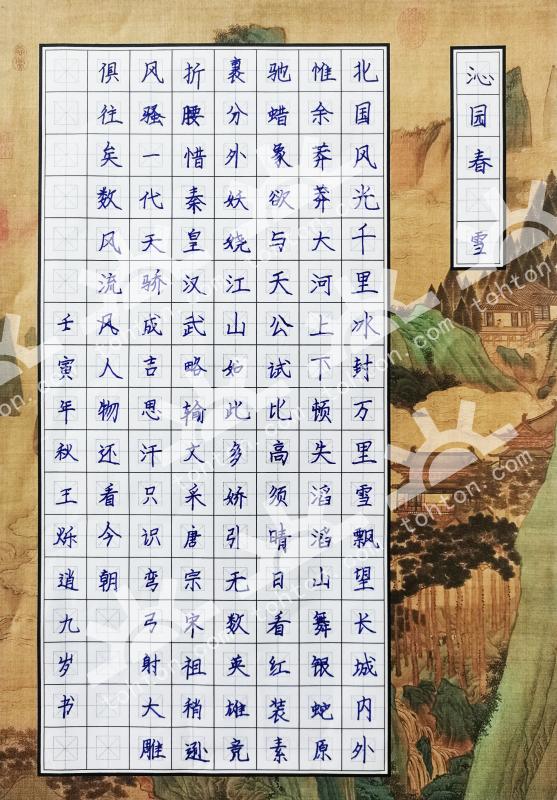 沁园春 雪
北国风光千里冰封万里雪飘望长城内外
惟余莽莽大河上下顿失滔滔山舞银蛇原
驰蜡象欲与天公试比高须晴日看红装素
裹分外妖娆江山如此多娇引无数英雄竞
折腰惜秦皇汉武略输文采唐宗宋祖稍逊
风骚一代天骄成吉思汗只识弯弓射大雕
俱往矣数风流人物还看今朝
壬寅年秋王烁逍九岁书
tohton.com